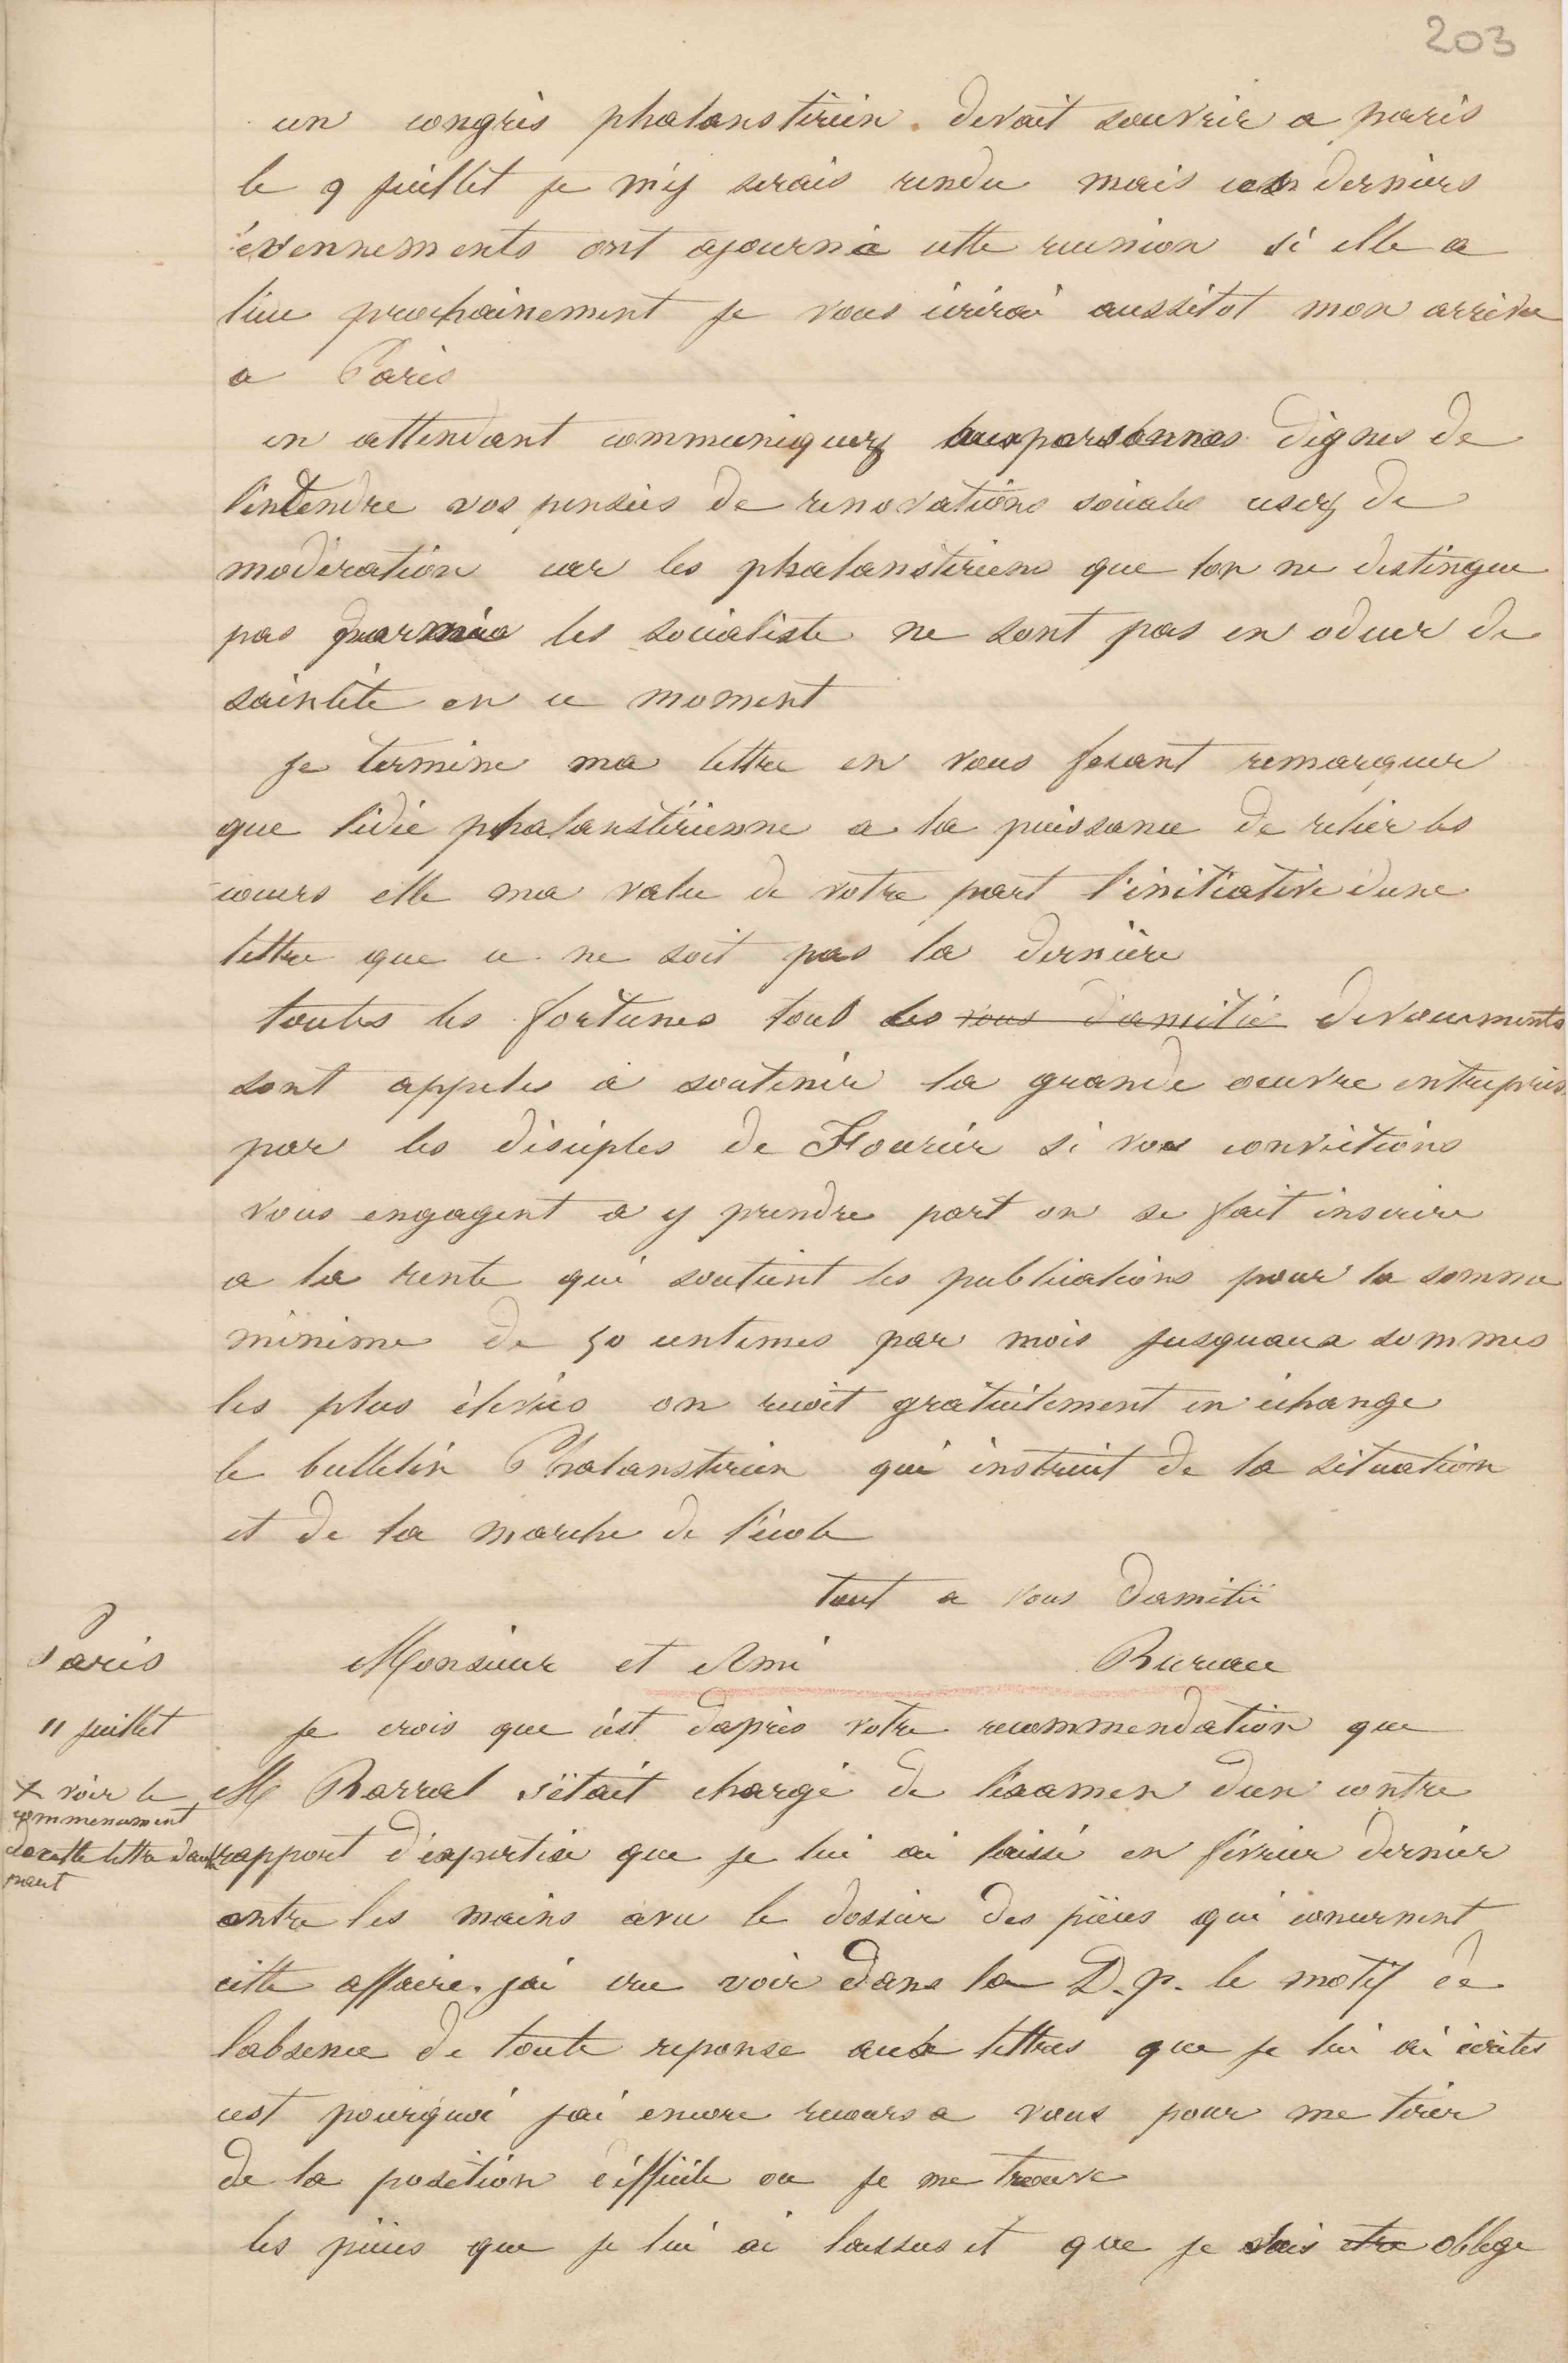 203
un congrès phalansterien devait souvrir a paris
le 9 juillet je m'y serais rendu mais ces derniers
évennements ont ajourné cette reunion si elle a
lieu prochainement je vous écrirai aussitot mon arrivée
a Paris
en attendant communiquez aux personnes dignes de
l'entendre vos pensées de renovations sociales usez de
modération car les phalanstériens que lon ne distingue
pas parmis les socialiste ne sont pas en odeur de
sainteté en ce moment
je termine ma lettre en vous fesant remarquer
que l'idée phalanstérienne a la puissance de relier les
cœurs elle ma value de votre part l'initiative dune
lettre que ce ne soit pas la dernière
toutes les fortunes tout les vous d'amitié devouements
sont appeles à soutenir la grande œuvre entreprise
par les disciples de Fourier si vos convictions
vous engagent a y prendre part on se fait inscrire
a la rente qui soutient les publications pour la somme
minime de 50 centimes par mois jusquaux sommes
les plus élevées on recoit gratuitement en echange
le bulletin Phalansterien qui instruit de la situation
et de la marche de l'école
tout a vous damitié
Paris
Monsieur et Ami
Bureau
11 juillet
je crois que c'est dapres votre recommendation que
x voir le
commencement
de cette lettre dau
M Barral s'était chargé de lexamen dun contre
rapport d'expertise que je lui ai laissé en février dernier
entre les mains avec le dossier des pièces qui concernent
cette affaire. jai cru voir dans la D. p. le motif de
labsence de toute reponse aux lettres que je lui ai écrites
cest pourquoi jai encore recours a vous pour me tirer
de la position difficile ou je me trouve
les pièces que je lui ai laissés et que je suis etre obligé